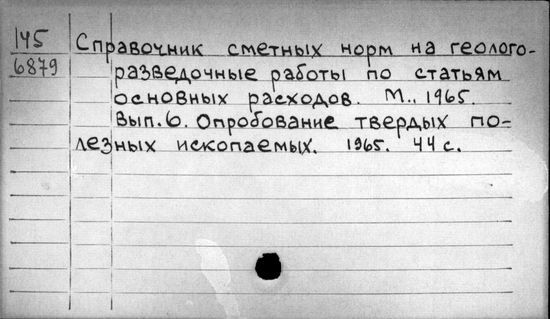 145
6879
Справочник сметных норм на геолого-
разведочные работы по статьям
основных расходов. М., 1965.
Вып. 6. Опробование твердых по-
лезных ископаемых. 1965. 44 с.